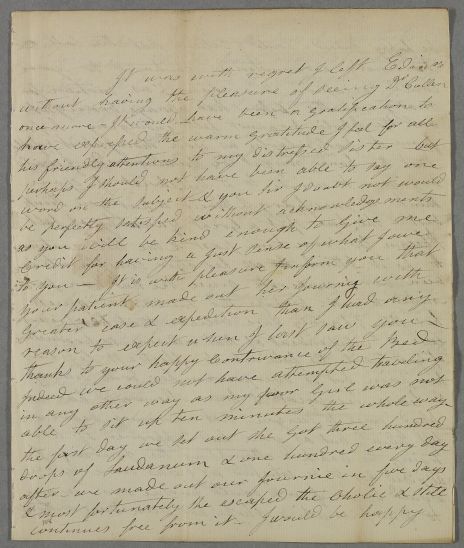 It was with regret I left Edinr
without having the pleasure of seeing Dr Cullen
once more - It would have been a gratification to
have expressed the warm gratitude I feel for all
his friendly attentions to my distressed Sister - but
perhaps I should not have been able to say one
word on the subject - & you Sir I doubt not would
be perfectly satisfied without acknowledgements
as you will be kind enough to give me
Credit for having a just sense of what I owe
to you - It is with pleasure I inform you that
your patient made out her journey with
Greater ease & expedition than I had any
reason to expect when I last saw you -
thanks to your happy Contrivance of the Bed
Indeed we could not have attempted traveling
in any other way as my poor Girl was not
able to sit up ten minutes the whole way -
the first day we set out she Got three hundred
drops of Laudanum & one hundred every day
after we made out our journie in five days
& most fortunately she escaped the Cholic & still
continues free from it - I would be happy